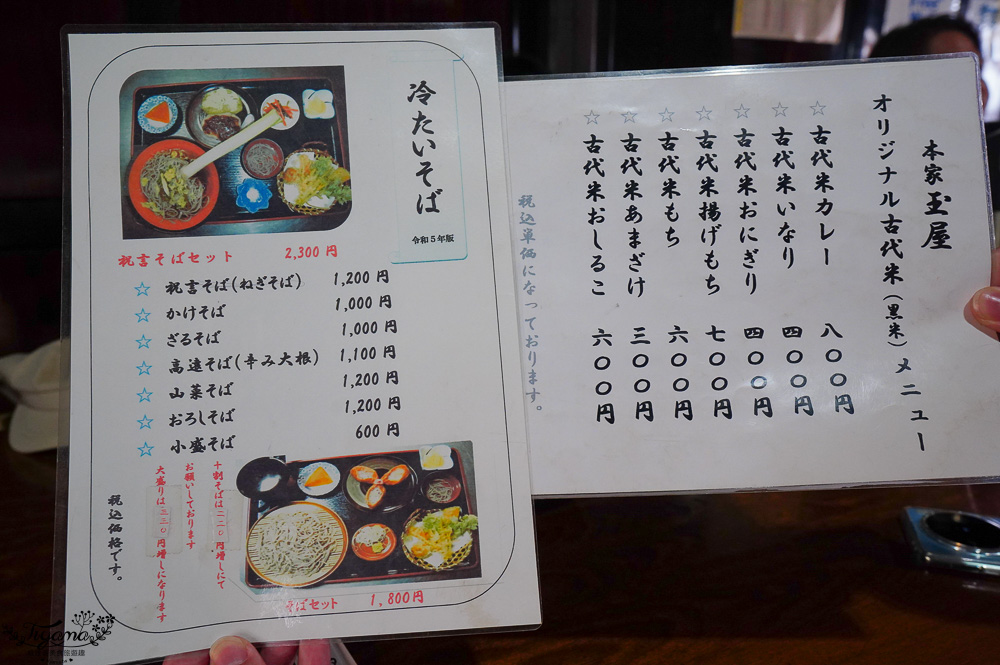 冷たいそば
令和5年版
祝言そばセット 2,300円
☆ 祝言そば(ねぎそば) 1,200円
☆ かけそば 1,000円
☆ ざるそば 1,000円
☆ 高遠そば(辛み大根) 1,100円
☆ 山菜そば 1,200円
☆ おろしそば 1,200円
☆ 小盛そば 600円
十割そばは二二〇円増しにて
お願いしております
大盛りは三三〇円増しになります
税込価格です。
そばセット 1,800円
本家玉屋
オリジナル古代米(黒米)メニュー
☆古代米カレー 八〇〇円
☆古代米いなり 四〇〇円
☆古代米おにぎり 四〇〇円
☆古代米揚げもち 七〇〇円
☆古代米もち 六〇〇円
☆古代米あまざけ 三〇〇円
☆古代米おしるこ 六〇〇円
税込単価になっております。